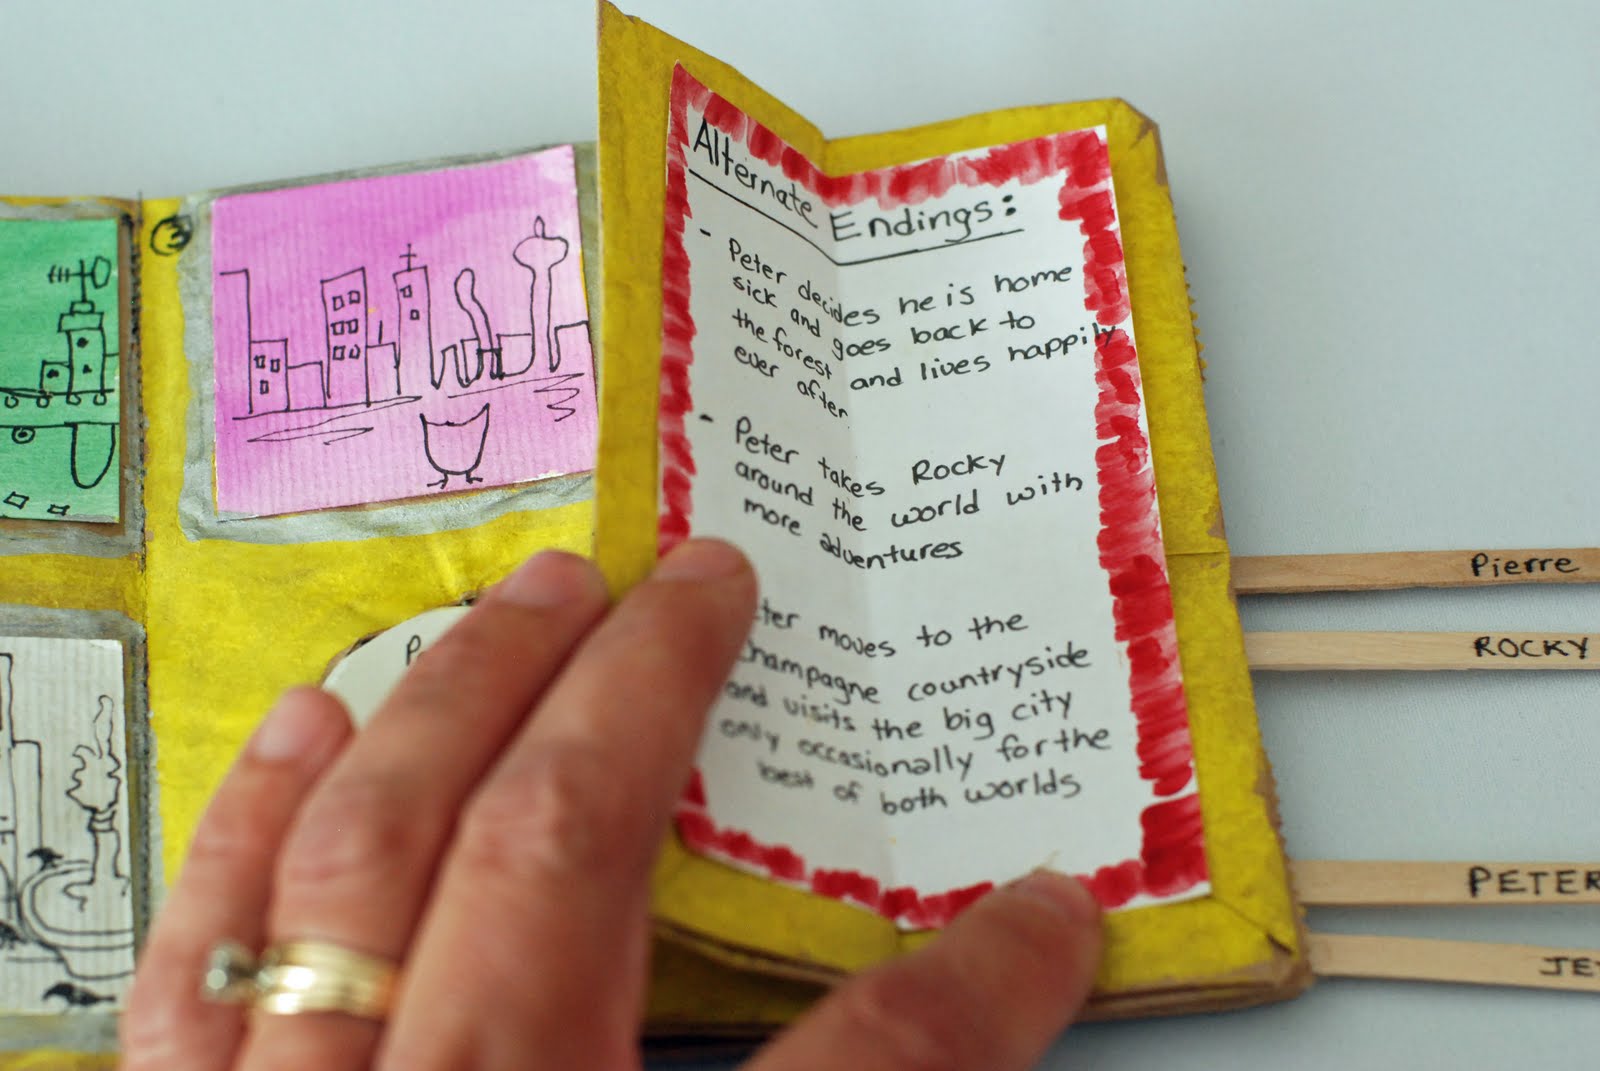 Alternate Endings:
- Peter decides he is home
sick and goes back to
the forest and lives happily
ever after
- Peter takes Rocky
around the world with
more adventures
moves to the
champagne countryside
and visits the big city
only occasionally for the
best of both worlds
Pierre
ROCKY
PETER
3